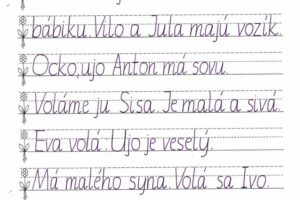 bábiku. Vilo a Jula majú vozík.
Ocko, ujo Anton má sovu.
Voláme ju Sisa. Je malá a sivá.
Eva volá: Ujo je veselý.
Má malého syna. Volá sa Ivo.